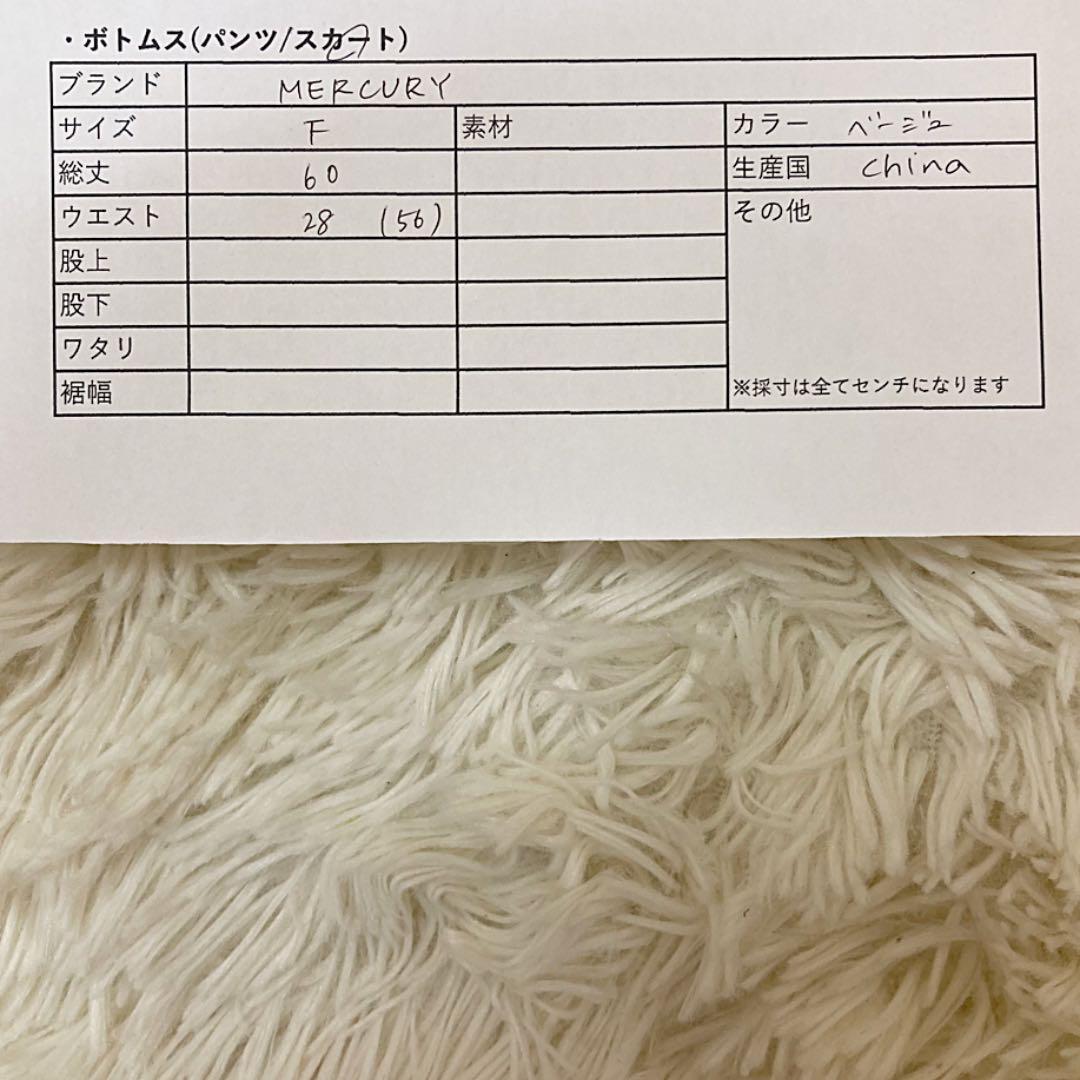 ・ボトムス(パンツ/スカート)
ブランド MERCURY
サイズ F 素材 カラー ベージュ
総丈 60 生産国 china
ウエスト 28 (56) その他
股上
股下
ワタリ
裾幅 ※採寸は全てセンチになります